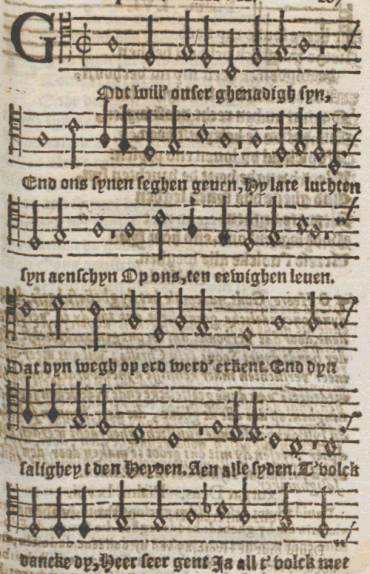 GOdt will' onser ghenadigh syn,
End ons synen seghen geven, Hy late luchten
syn aenschyn Op ons, ten eewighen leven.
Dat dyn wegh op erd werd' erkent. End dyn
saligheyt den Heyden. Aen alle syden. T'volck
dancke dy, Heer seer gent Ja all t' volck met